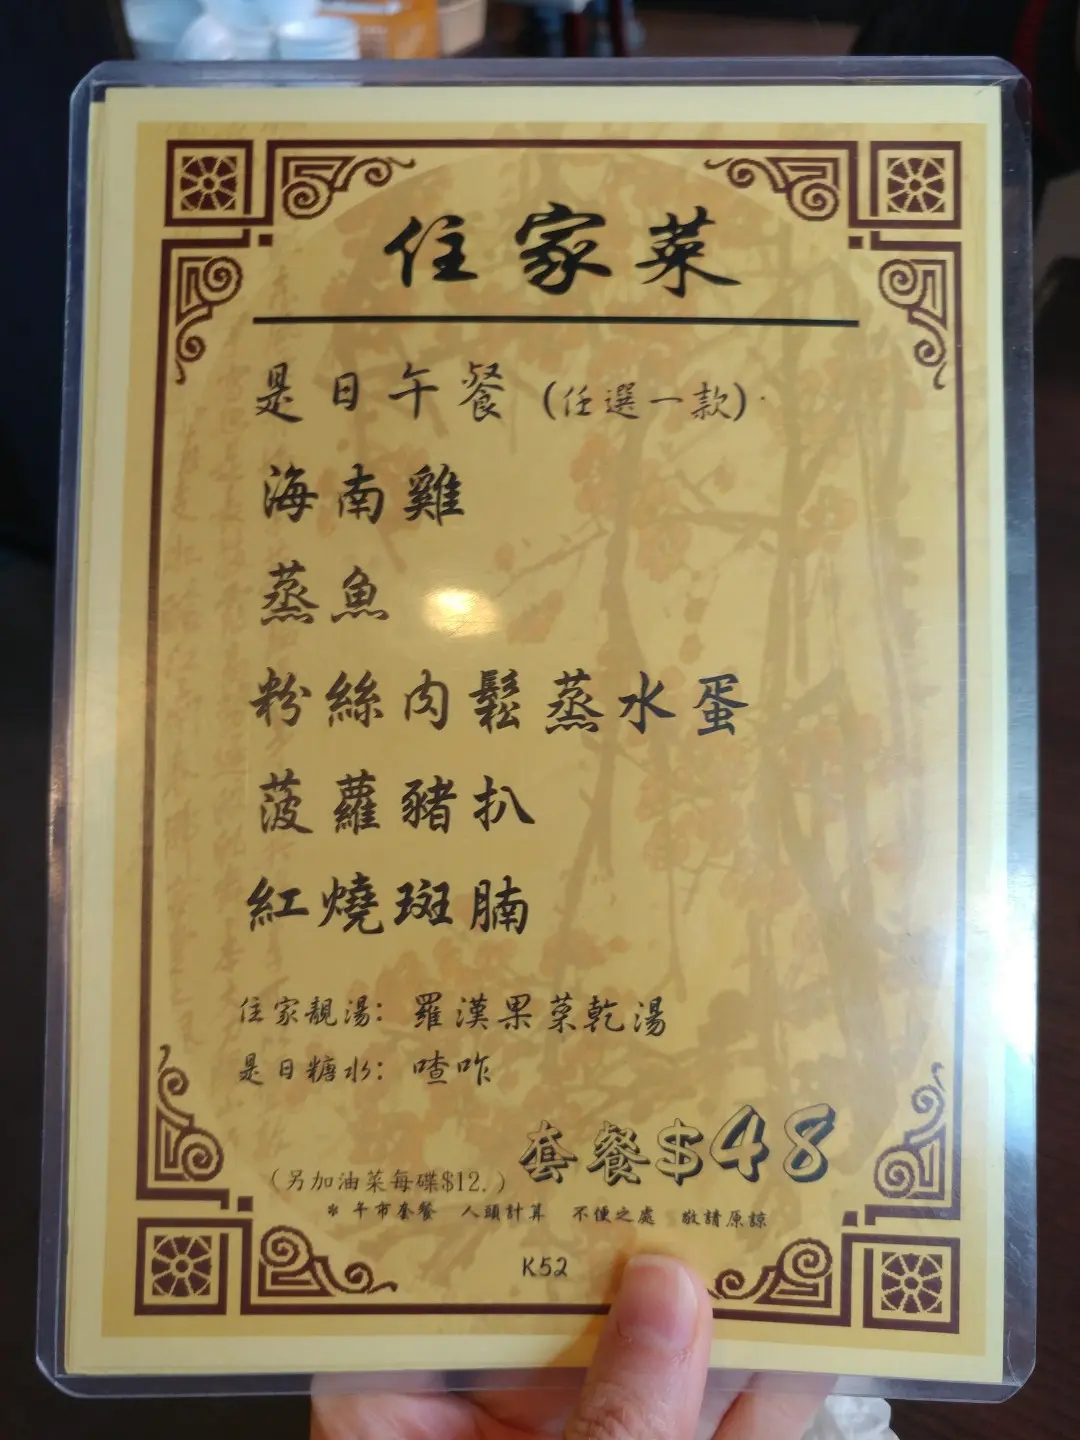 住家菜
是日午餐 (任選一款)
海南雞
蒸魚
粉絲肉鬆蒸水蛋
菠蘿豬扒
紅燒斑腩
住家靚湯: 羅漢果菜乾湯
是日糖水: 喳咋
套餐$48
(另加油菜每碟$12.)
* 午市套餐 人頭計算 不便之處 敬請原諒
K52